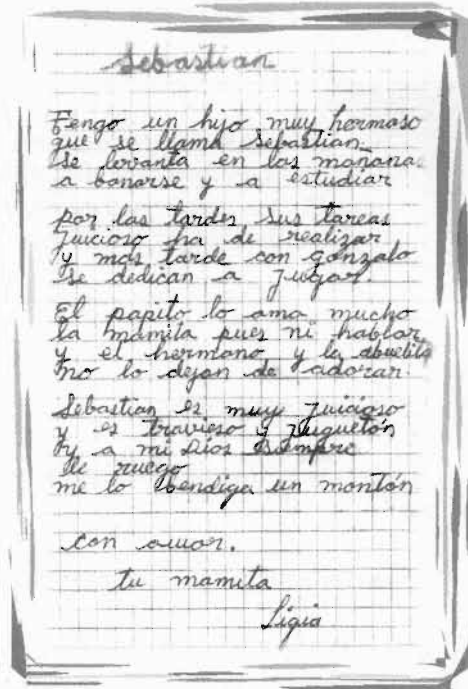 Sebastian
Tengo un hijo muy hermoso
que se llama Sebastian
se levanta en las mañanas
a banarse y a estudiar
por las tardes sus tareas
Juicioso ha de realizar
y mas tarde con gonzalo
se dedican a Jugar.
El papito lo ama mucho
la mamita pues ni hablar
y el hermano y la abuelita
no lo dejan de adorar.
Sebastian es muy Juicioso
y es travieso y Juguetón
y a mi Dios siempre
le ruego
me lo bendiga un montón
con amor.
tu mamita
Ligia